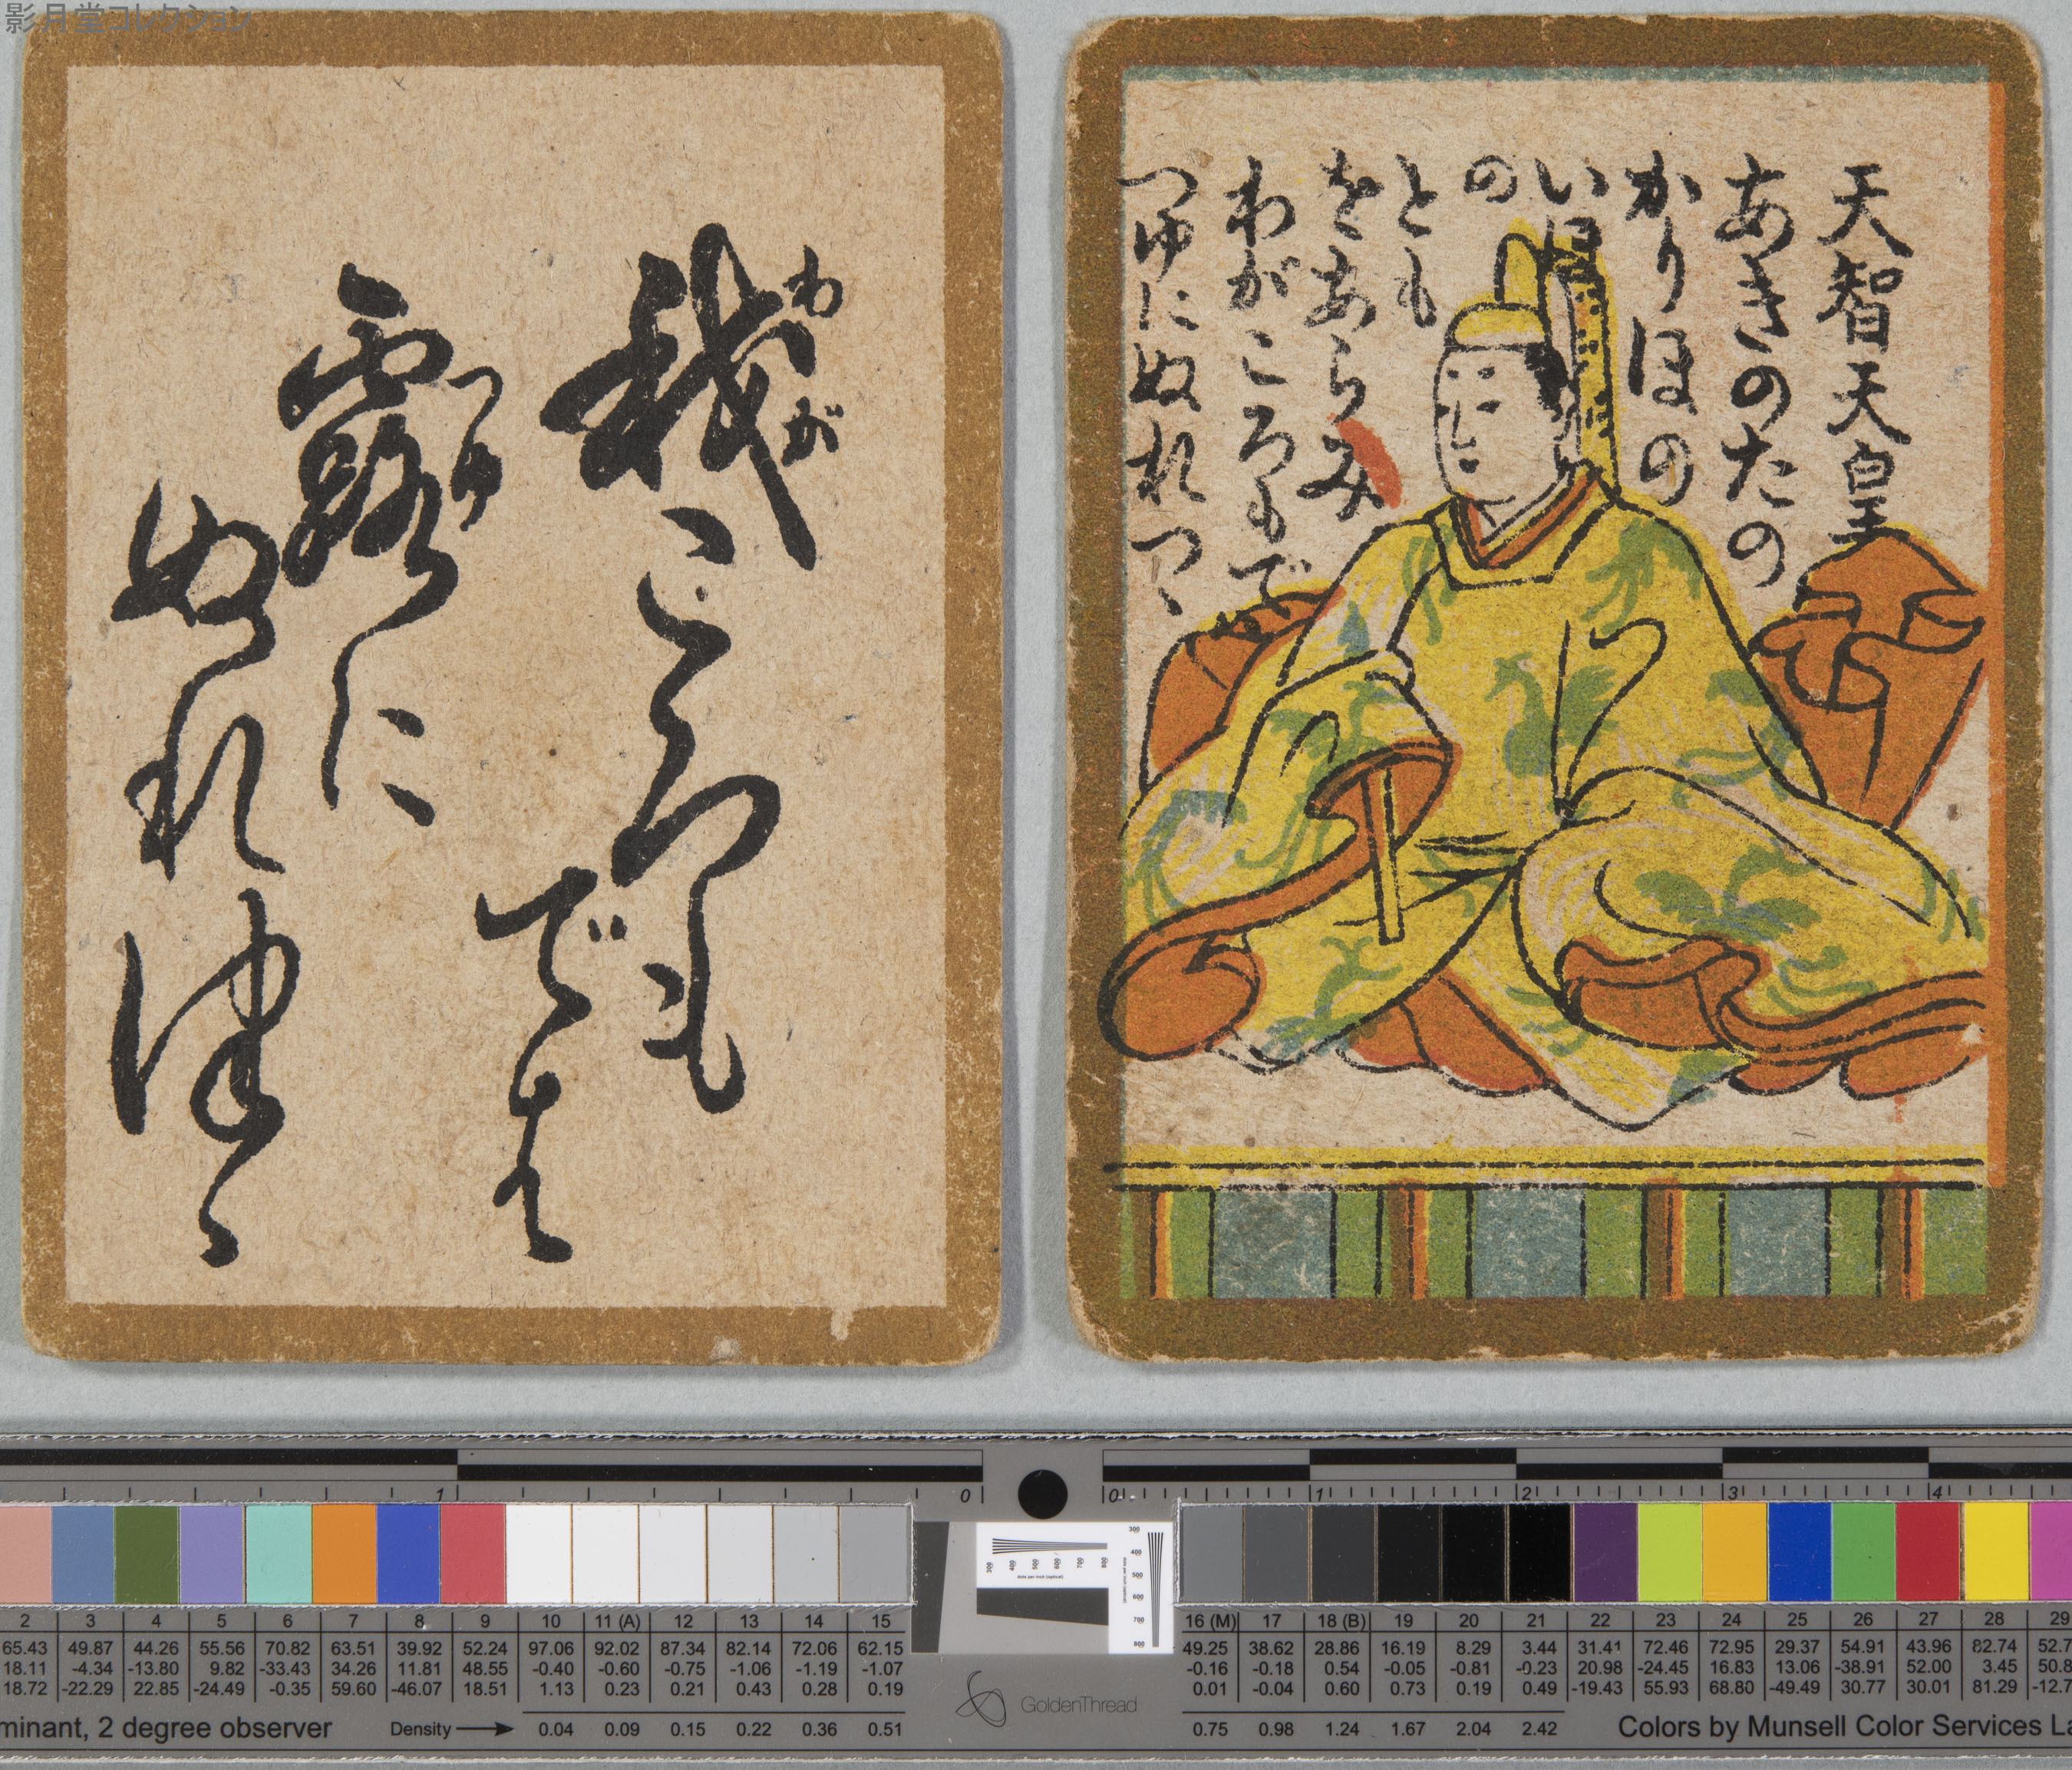 影月堂コレクション
天智天皇
あきのたの
かりほの
いほ
の
とも
をあらみ
わがころもで
つゆにぬれつゝ
わが
我ころも
では
つゆ
露に
ぬれ津ゝ
1 0 0 1 2 3 4
300 400 500 600 700 800
dots per inch (optical)
300 400 500 600 700 800
2 3 4 5 6 7 8 9 10 11 (A) 12 13 14 15
65.43 49.87 44.26 55.56 70.82 63.51 39.92 52.24 97.06 92.02 87.34 82.14 72.06 62.15
18.11 -4.34 -13.80 9.82 -33.43 34.26 11.81 48.55 -0.40 -0.60 -0.75 -1.06 -1.19 -1.07
18.72 -22.29 22.85 -24.49 -0.35 59.60 -46.07 18.51 1.13 0.23 0.21 0.43 0.28 0.19
minant, 2 degree observer Density 0.04 0.09 0.15 0.22 0.36 0.51
GoldenThread
16 (M) 17 18 (B) 19 20 21 22 23 24 25 26 27 28 29
49.25 38.62 28.86 16.19 8.29 3.44 31.41 72.46 72.95 29.37 54.91 43.96 82.74 52.7
-0.16 -0.18 0.54 -0.05 -0.81 -0.23 20.98 -24.45 16.83 13.06 -38.91 52.00 3.45 50.8
0.01 -0.04 0.60 0.73 0.19 0.49 -19.43 55.93 68.80 -49.49 30.77 30.01 81.29 -12.7
0.75 0.98 1.24 1.67 2.04 2.42 Colors by Munsell Color Services La